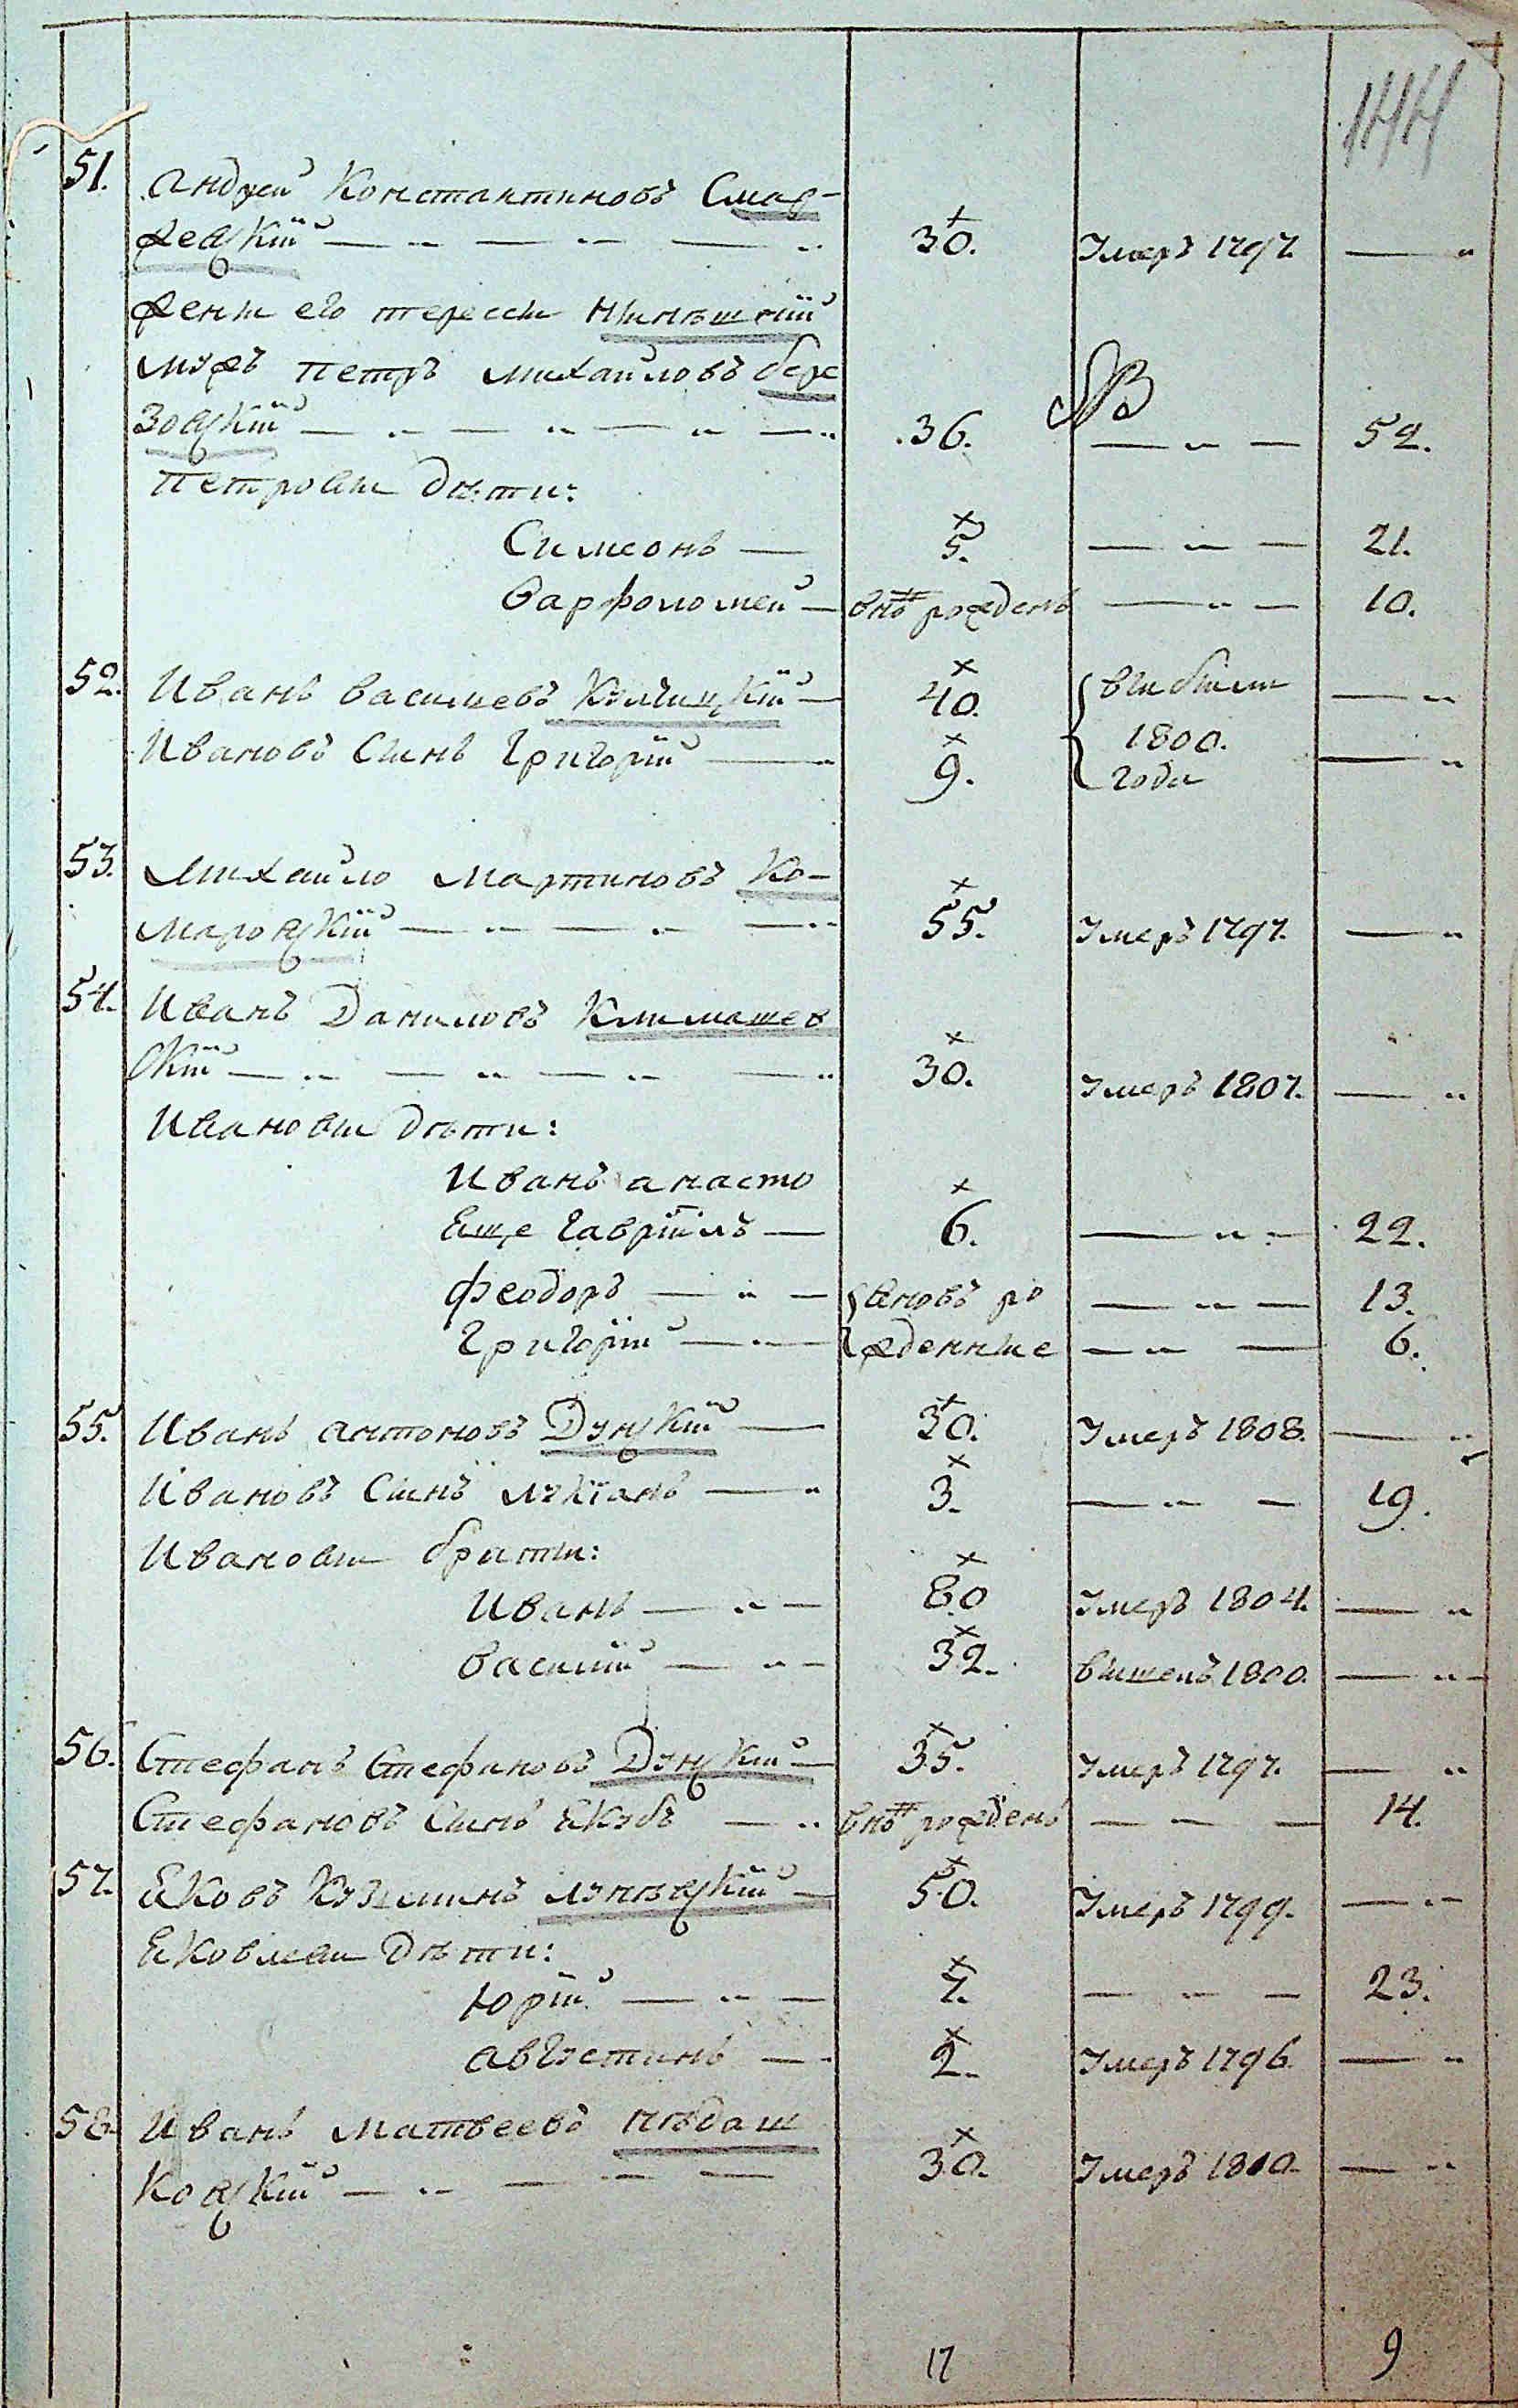 144
51. Андрей Константиновъ Смар-
жевскій — „ — „ — „ 30. Умеръ 1797. — „
жены его терессы нынѣшній
мужъ Петръ Михайловъ Бере
зовскій — „ — „ — „ — „ 36. — „ — 52.
Петровы дѣти:
Симеонъ — 5. — „ — 21.
Варфоломей — внѣ рожденъ — „ — 10.
52. Иванъ Васильевъ Кульчицкій — 40. выбыли — „
Ивановъ сынъ Григорій — „ 9. 1800. года — „
53. Михайло Мартиновъ Ко-
маровскій — „ — „ — „ 55. Умеръ 1797. — „
54. Иванъ Даниловъ Климашев
скій — „ — „ — „ — „ 30. Умеръ 1807. — „
Ивановы дѣти:
Иванъ а насто
яще Гавріилъ — 6. — „ — 22.
Феодоръ — „ — вновь ро — „ — 13.
Григорій — „ — жденные — „ — 6.
55. Иванъ Антоновъ Дунскій — 30. Умеръ 1808. — „
Ивановъ сынъ Лукіанъ — „ 3. — „ — 19.
Ивановы браты:
Иванъ — „ — 80 Умеръ 1804. — „
Василій — „ — 32. вышелъ 1800. — „
56. Стефанъ Стефановъ Дунскій — 35. Умеръ 1797. — „
Стефановъ сынъ Якубъ — „ внѣ рожденъ — „ — 14.
57. Яковъ Кузминъ Луневскій — 50. Умеръ 1799. — „
Яковлевы дѣти:
Юрій — „ — 7. — „ — 23.
Августинъ — „ 2. Умеръ 1796. — „
58. Иванъ Матвеевъ Нѣдаш
ковскій — „ — „ — 30. Умеръ 1810. — „
17 9